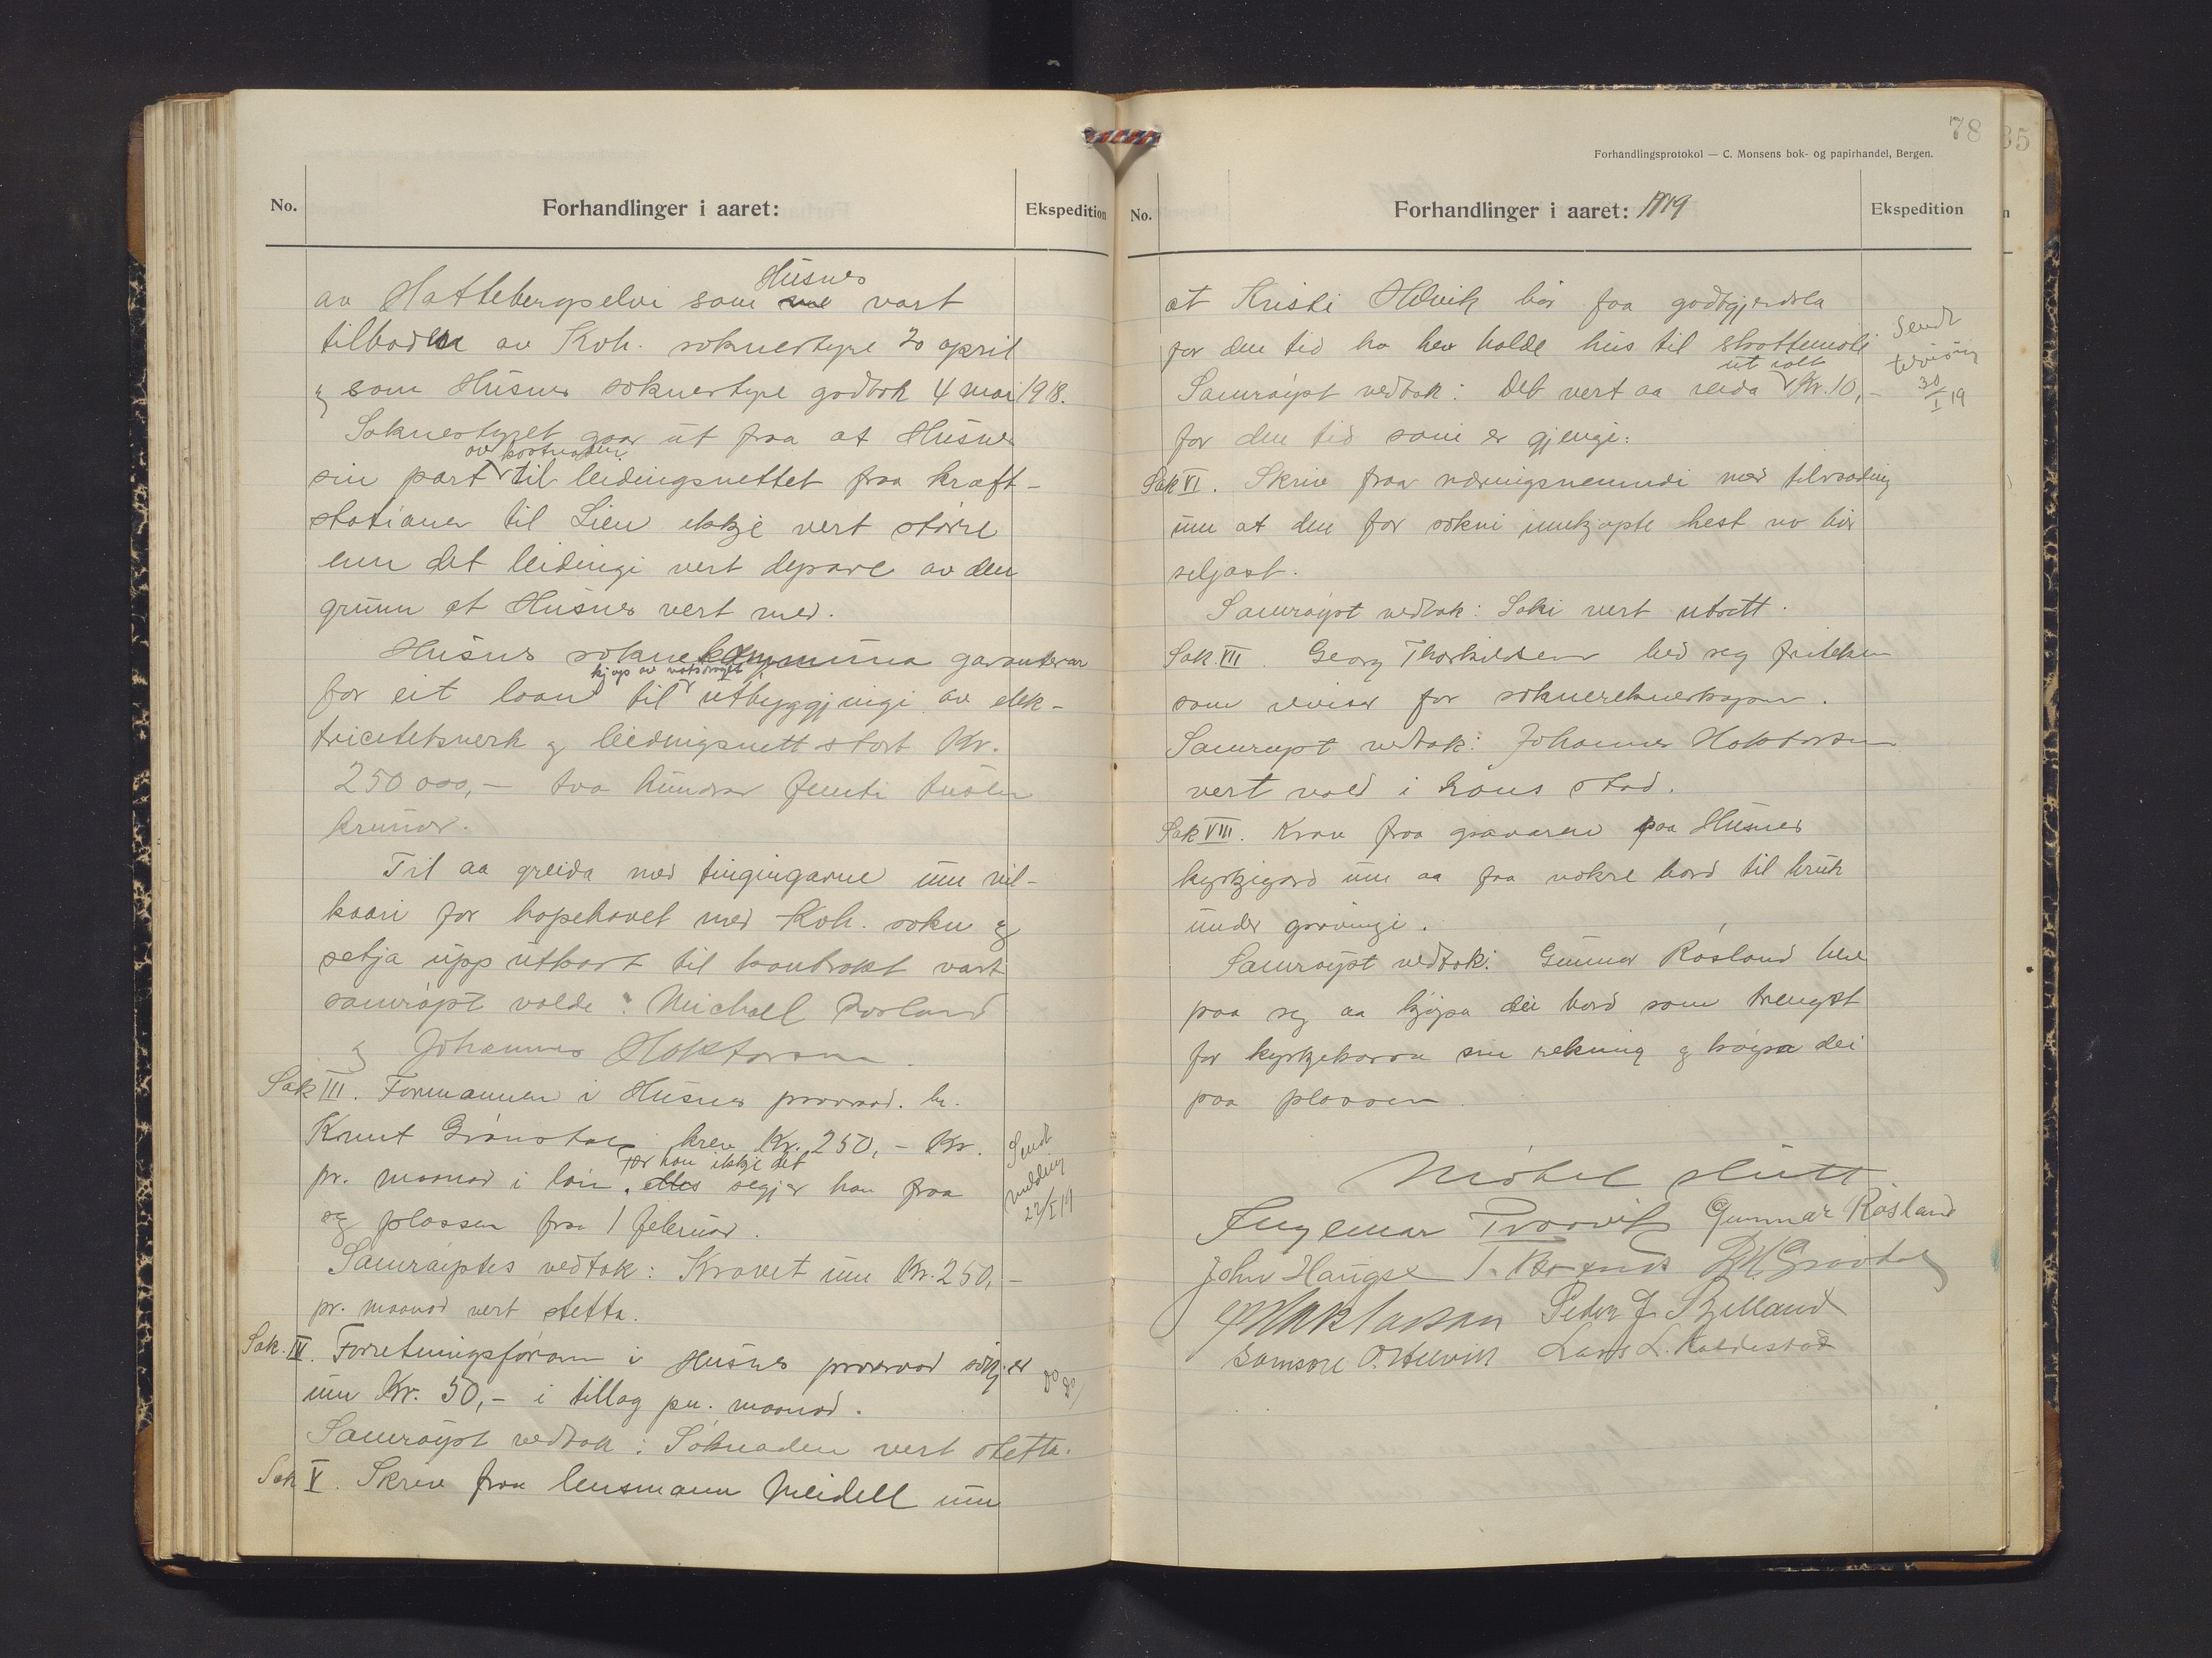 No. Forhandlinger i aaret: Ekspedition
av Hattebergselvi som Husnes vart
tilboden av Kvh. soknestyre 20 april
og som Husnes soknestyre godtok 4 mai 1918.
Soknestyret gaar ut fraa at Husnes
av kostnaden
sin part til leidingsnettet fraa kraft-
stationen til Lien ikkje vert større
enn det leidingi vert dyrare av den
grunn at Husnes vert med.
Husnes soknekommuna garanterar
kjøp av vatsdraget
for eit laan til utbyggjingi av elek-
tricitetsverk og leidningsnett stort Kr.
250 000,- tvo hundrad femti tusen
krunor.
Til aa greida med tingingarne um vil-
kaari for hopehavet med Kvh. sokn og
setja upp utkast til kontrakt vart
samrøyst valde: Michael Rosland
og Johannes Haktorson.
Sak III. Formannen i Husnes provraad. hr.
Knut Grønstad krev Kr. 250,- Kr.
Fær han ikkje det
pr. maanad i løn. segjer han fraa
seg plassen fra 1 februar.
Sendt
melding
22/I 19
Samrøystes vedtak: Kravet um Kr. 250,-
pr. maanad vert stetta.
Sak. IV. Forretningsføraren i Husnes provraad søkjer
um Kr. 50,- i tillag pr. maanad.
do do
Samrøyst vedtak: Søknaden vert stetta.
Sak V. Skriv fraa lensmann Meidell um
78
35
Forhandlingsprotokol — C. Monsens bok- og papirhandel, Bergen.
No. Forhandlinger i aaret: 1919 Ekspedition
at Kristi Helvik bør faa godtgjersla
for den tid ho hev halde hus til skattemøti
ut i alt
Samrøyst vedtak: Det vert aa reida Kr. 10,-
for den tid som er gjengi.
Sendt
30/I 19
Sak VI. Skriv fraa næringsnemndi med tilraading
um at den for sokni innkjøpte hest no bør
seljast.
Samrøyst vedtak: Saki vert utsett.
Sak. VII. Georg Thorkildsen bed seg friteken
som revisor for soknerekneskapen.
Samrøyst vedtak: Johannes Haktorson
vert vald i hans stad.
Sak VIII. Krav fraa gravaren paa Husnes
kyrkjegard um aa faa nokre bord til bruk
under gravingi.
Samrøyst vedtak: Gunnar Røsland tek
paa seg aa kjøpa dei bord som trengst
for kyrkjekassa sin rekning og køyra dei
paa plassen.
Møtet slutt
Ingemar Tvedvik Gunnar Røsland
John Haugse
J Haktorson Peder J. Kjelland
Samson O. Helvik Lars L. Kaldestad